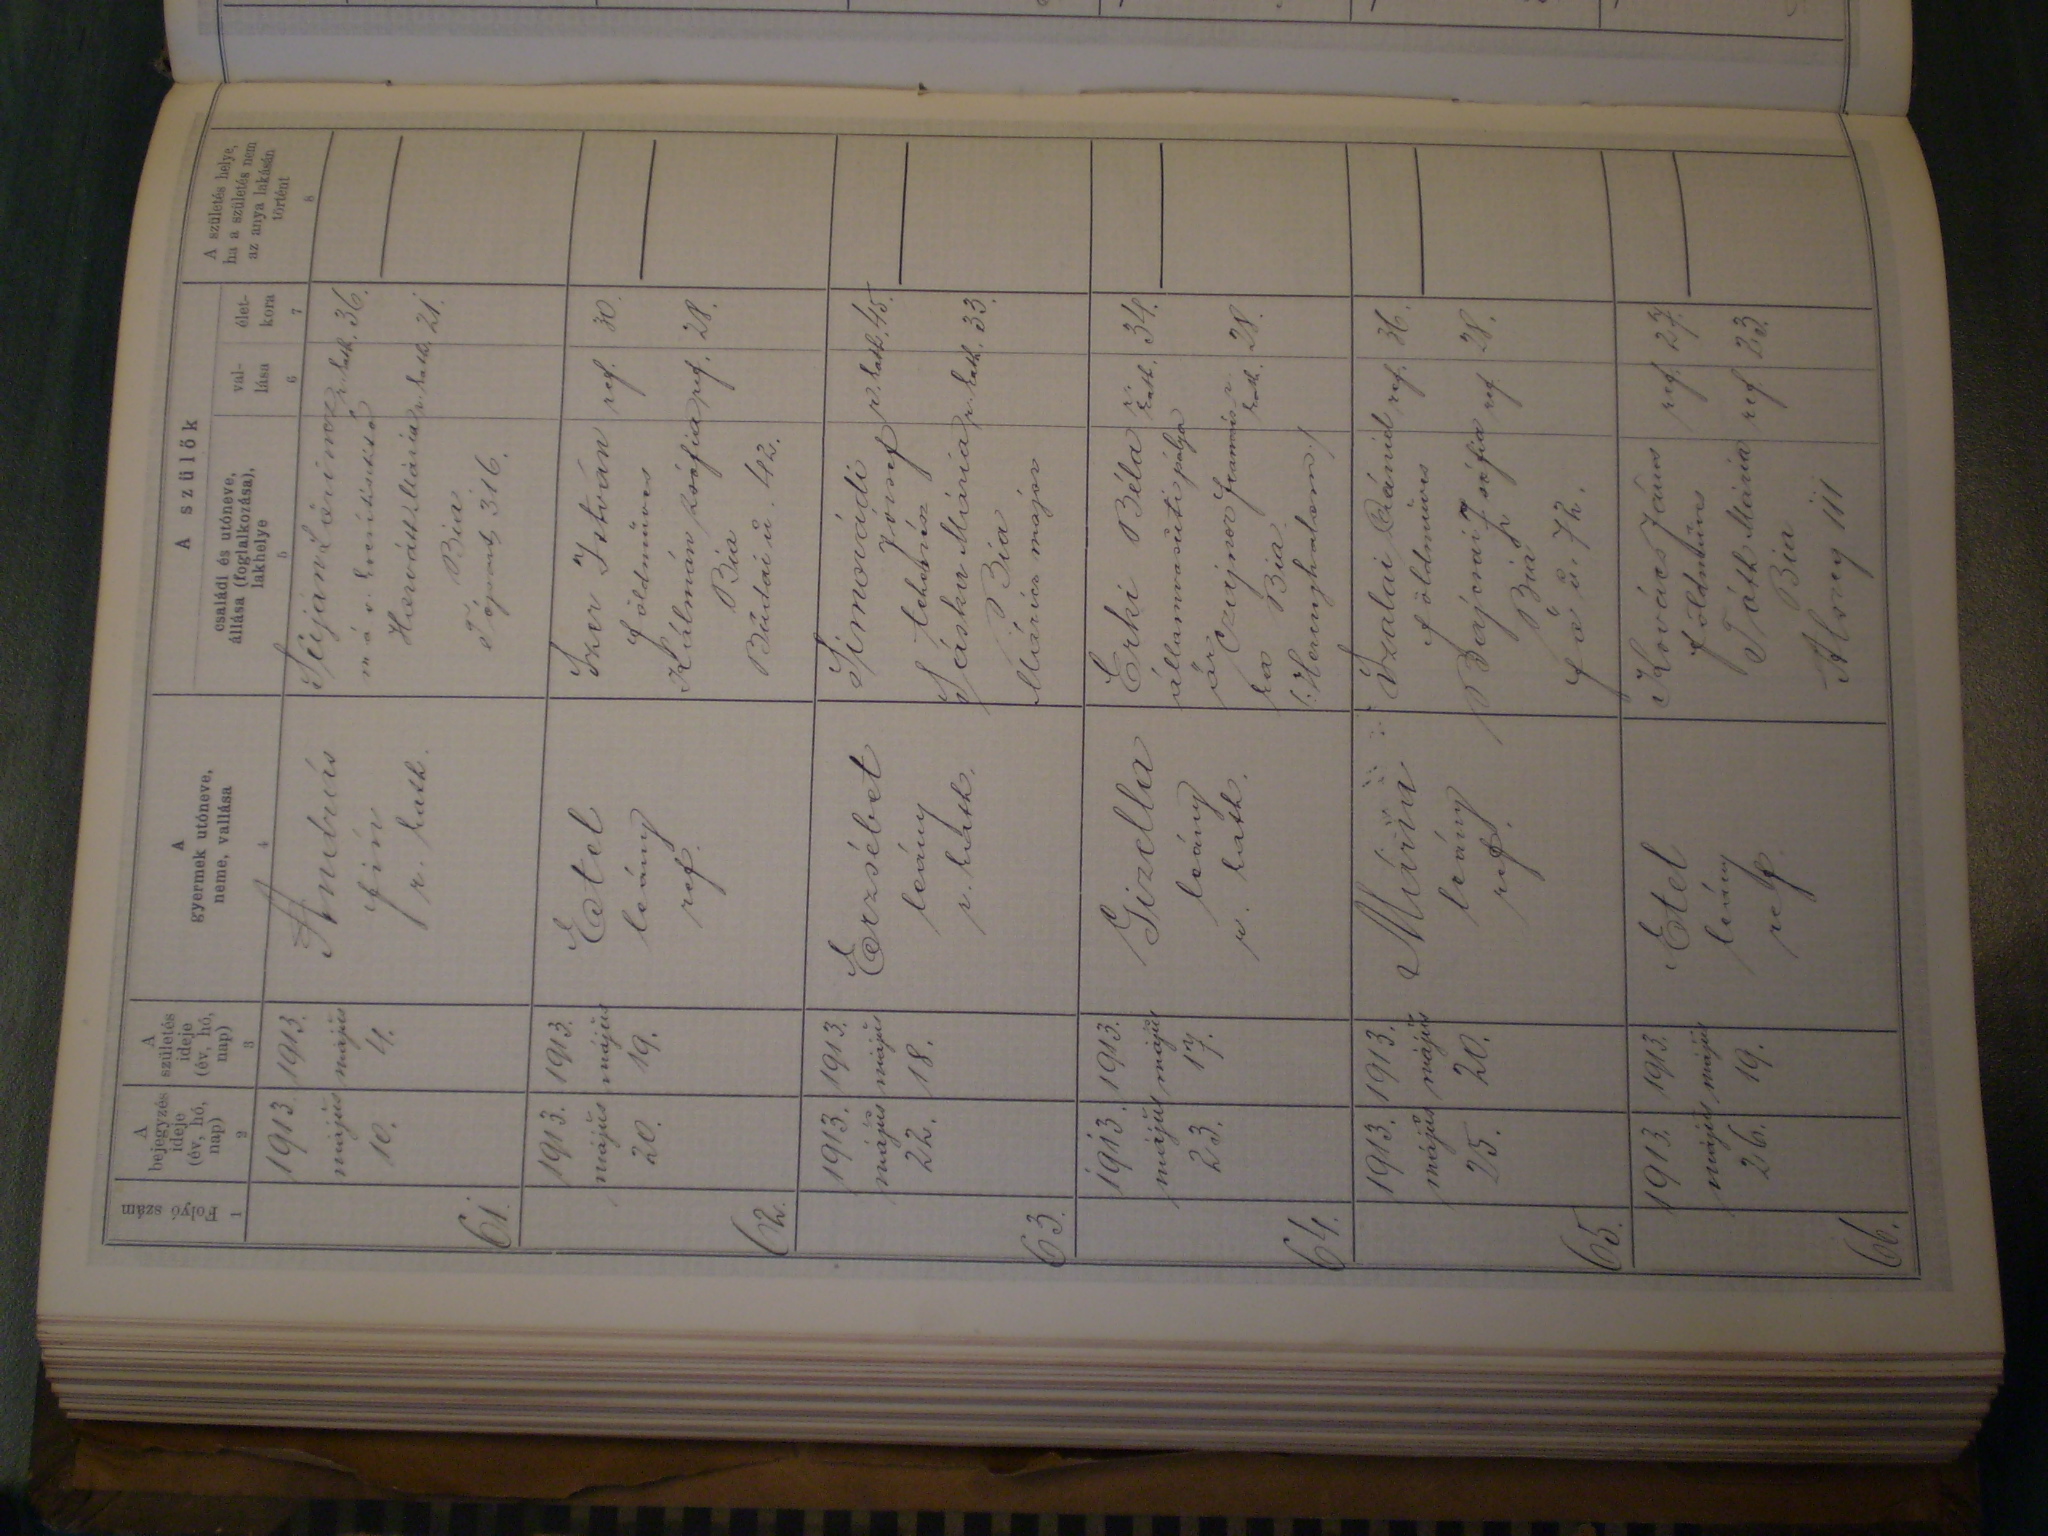 Folyó szám
A bejegyzés ideje (év, hó, nap)
A születés ideje (év, hó, nap)
A gyermek utóneve, neme, vallása
A szülők
családi és utóneve, állása (foglalkozása), lakhelye
vallása
életkora
A születés helye, ha a születés nem az anya lakásán történt
1
2
3
4
5
6
7
8
61.
1913. május 10.
1913. május 4.
András
fiú
r. kath.
r. kath. 36.
Horváth Mária r. kath. 21.
Bia
316.
62.
1913. május 20.
1913. május 19.
Etel
leány
ref.
Szer István ref. 30.
földműves
Kálmán Zsófia ref. 28.
Bia
Budai ú. 42.
63.
1913. május 22.
1913. május 18.
Erzsébet
leány
r. kath.
Simovádi
József r. kath. 45.
tehenész
Sáska Mária r. kath. 33.
Bia
major
64.
1913. május 23.
1913. május 17.
Gizella
leány
r. kath.
Erki Béla r. kath. 34.
államvasuti pálya
őr
r. kath. 28.
Bia
65.
1913. május 25.
1913. május 20.
Mária
leány
ref.
Szalai Dániel ref. 36.
földműves
Bajcsai Zsófia ref. 28.
Bia
fő ú. 72.
66.
1913. május 26.
1913. május 19.
Etel
leány
ref.
Kovács János ref. 27.
földműves
Tóth Mária ref 23.
Bia
111